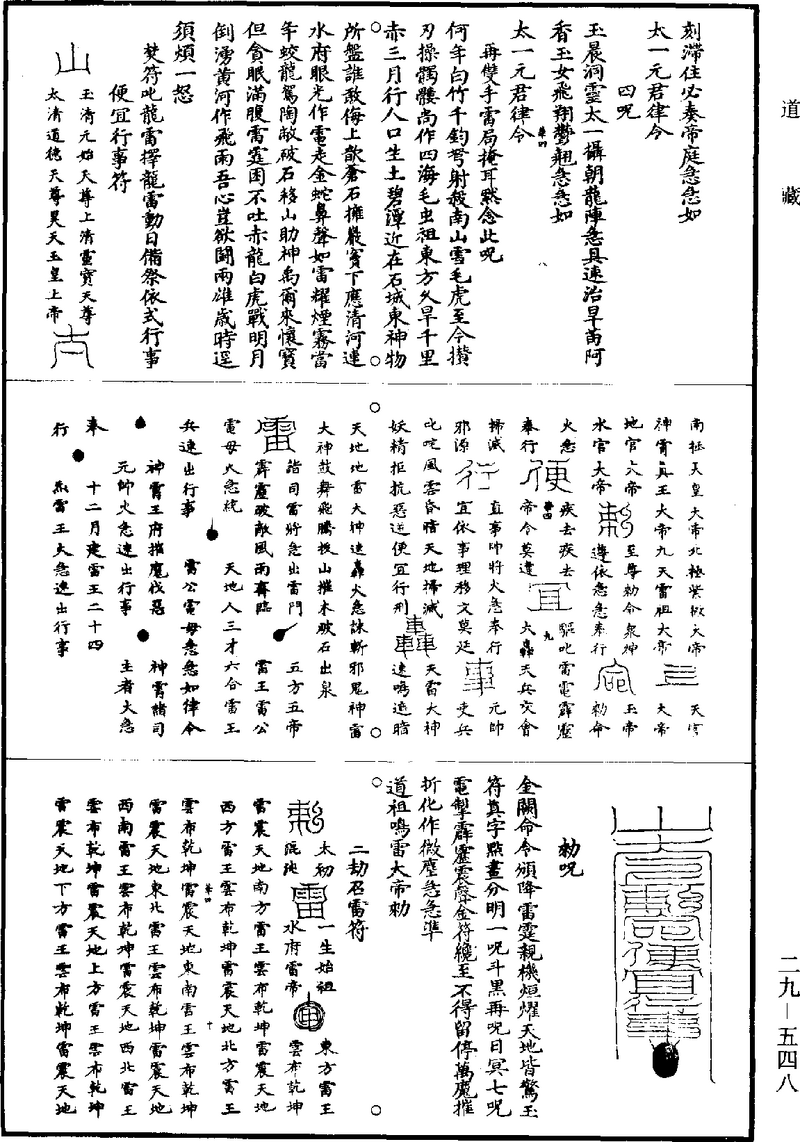 道藏
刻滯住必奏帝庭急急如
太一元君律令
四咒
玉晨洞靈太一攝朝龍陣急具速治旱苗阿
香玉女飛翔鬱翹急急如
太一元君律令
再雙手雷局掩耳默念此咒
何年白竹千鈞弩射殺南山雪毛虎至今攢
刃操髑髏尚作四海毛虫祖東方久旱千里
赤三月行人口生土碧潭近在石城東神物
所盤誰敢侮上歆蒼石擁巖竇下應清河連
水府眼光作電走金蛇鼻聲如雷耀煙霧當
年蛟龍駕陶敵破石移山助神禹爾來懷寶
但貪眠滿腹雷霆困不吐赤龍白虎戰明月
倒湧黃河作飛雨吾心豈欲鬪兩雄歲時逕
須煩一怒
焚符叱龍雷擇龍雷動日備祭依式行事
便宜行事符
玉清元始天尊上清靈寶天尊
太清道德天尊昊天玉皇上帝
南極天皇大帝北極紫微大帝
神霄真王大帝九天雷祖大帝 天官
地官大帝 至尊勑命眾神 大帝
水官大帝 敕 遵依急急奉行 玉帝
火急 疾去疾去 勑命
奉行 便 帝令莫違 驅叱雷電霹靂
掃滅 宜 大轟天兵交會
邪源 行 直事帥將火急奉行
宜依事理移文莫延 事 元帥
叱咤風雲昏暗天地掃滅 吏兵
妖精拒抗惡逆便宜行刑 天雷大神
速鳴遶暗
天地地雷大神速轟火急誅斬邪鬼神雷
大神鼓舞飛騰拔山摧木破石出泉
雷 諸司雷將急出雷門 五方五帝
霹靂破敵風雨齊臨 雷王雷公
電母火急統 天地人三才六合雷王
兵速出行事 雷公電母急急如律令
神霄王府摧魔伐惡 神霄諸司
元帥火急速出行事 主者火急
奉 十二月建雷王二十四
行 炁雷王火急速出行事
勑咒
金闕命令頒降雷霆親機烜耀天地皆驚玉
符真字點畫分明一咒斗黑再咒日冥七咒
電掣霹靂震聲金符纔至不得留停萬魔摧
折化作微塵急急準
道祖鳴雷大帝勑
二劫召雷符
敕 太初 雷 一生始祖 東方雷王
混沌 水府雷帝 雲布乾坤
雷震天地南方雷王雲布乾坤雷震天地
西方雷王雲布乾坤雷震天地北方雷王
雲布乾坤雷震天地東南雷王雲布乾坤
雷震天地東北雷王雲布乾坤雷震天地
西南雷王雲布乾坤雷震天地西北雷王
雲布乾坤雷震天地上方雷王雲布乾坤
雷震天地下方雷王雲布乾坤雷震天地
二九—五四八